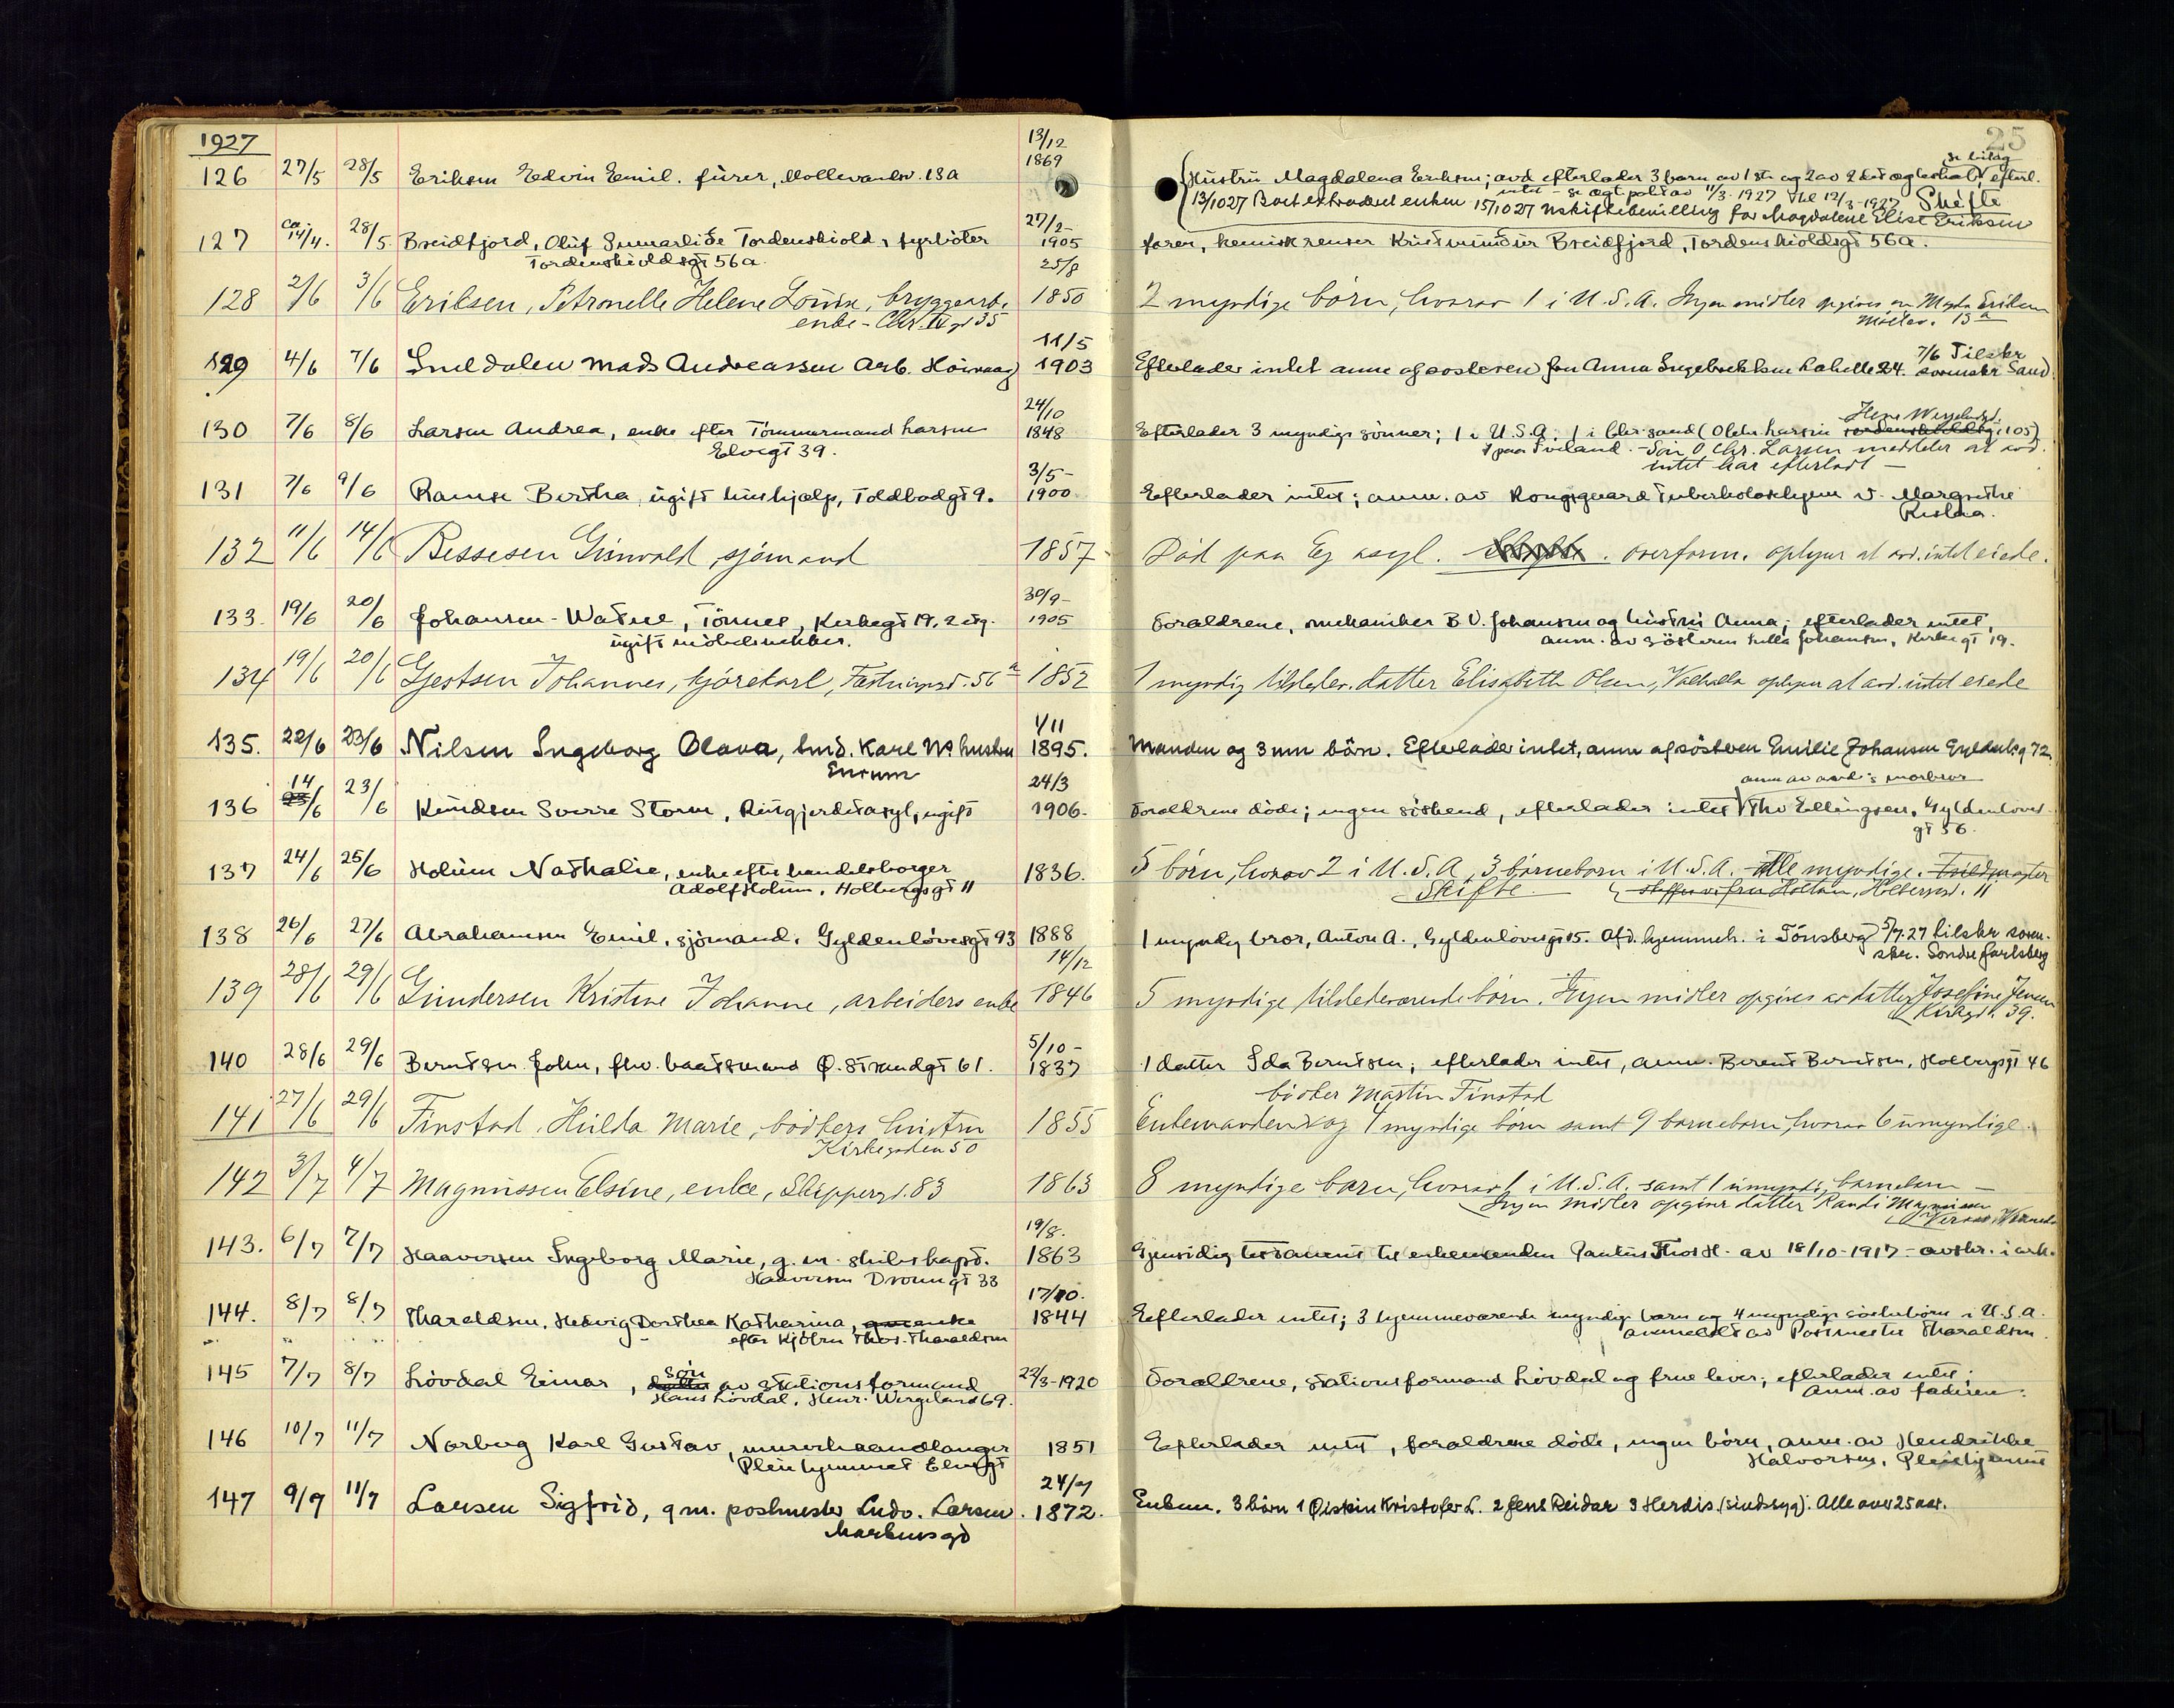 1927
25
126 27/5 28/5 Eriksen Edvin Emil. fürer, Mollevandsv. 13a 13/12 1869 Hustru Magdalena Eriksen; avd efterlader 3 barn av 1ste og 2 av 2det egteskab, efterl. se bilag
intet - se egt pakt av 11/3-1927 12/3-1927 Skifte
13/10 27 enken 15/10 27 uskiftebevilling for Magdalene Elise Eriksen
127 ca 14/4. 28/5 Breidfjord, Oluf Sumarlide Tordenskiold, fyrböter 27/2- 1905 farer, kemisk renser Kristmundur Breidfjord, Tordenskioldsgt 56a.
Tordenskioldsgt 56a.
128 2/6 3/6 Eriksen, Petronelle Helene Louise, bryggearb. 25/8 1850 2 myndige börn, hvorav 1 i U.S.A. Ingen midler opgives av Magda Eriksen
enke - Chr. IV gt 35 Möllev. 13a
129 4/6 7/6 Smedalen Mads Andreassen Arb. Höivaag 11/5 1903 Efterlader intet anm af søsteren fru Anna Ingebrektsen Lahelle 24. 7/6 Tilskr
sorenskr Sand.
130 7/6 8/6 Larsen Andrea, enke efter Tömmermand Larsen 24/10 1848 Efterlader 3 myndige sönner; 1 i U.S.A. 1 i Chr.sand (O Chr. Larsen Henr Wergelandsgt. Tordenskioldsg. 105)
Elvegt 39. 1 paa Tveland. - Sön O Chr. Larsen meddeler at avd.
intet har efterladt -
131 7/6 9/6 Ramse Bertha, ugift hushjælp, Toldbodgt 9. 3/5- 1900 Efterlader intet; anm. av Kongsgaard Tuberkolosehjem v. Margrethe
132 11/6 14/6 Bessesen Grunvald, sjömand 1857 Död paa Eg asyl. Skifte. overform. oplyser at avd. intet eiede.
133. 19/6 20/6 Johansen-Watne, Tönnes, Kirkegt 19, 2 etg. 30/9- 1905 Foraldrene, mekaniker B.V. Johansen og hustru Anna; efterlader intet,
ugift möbelsnekker. anm. av sösteren Hella Johansen, Kirkegt 19.
134 19/6 20/6 Gjestsen Johannes, kjörekarl, Fæstningsgt. 56a 1852 1 myndig tilstedev. datter Elisabeth Olsen, Valhalla oplyser at avd. intet eiede
135. 22/6 23/6 Nilsen Ingeborg Olava, smd. Karl Ns hustru 1/11 1895. Manden og 3 mn börn. Efterlader intet, anm af søsteren Emilie Johansen Gyldenl.g 72
136 14 23/6 23/6 Knudsen Sverre Storm, Ringjerdetasyl, ugift 24/3 1906. Foraldrene döde; ingen söskend, efterlader intet anm av avd's morbror Thv Ellingsen, Gyldenlöves
gt 56.
137 24/6 25/6 Holum Nathalie, enke efter handelsborger 1836. 5 börn, hvorav 2 i U.S.A, 3 börnebörn i U.S.A. Alle myndige.
Adolf Holum, Holbergsgt 11 Skifte Holbergsgt. 11
138 26/6 27/6 Abrahamsen Emil, sjömand. Gyldenlövesgt 93 1888 1 myndig bror, Anton A., Gyldenlövesgt 15. Afd. hjemmeh. i Tönsberg 5/7.27 tilskr soren-
skr. Söndre Jarlsberg
139 28/6 29/6 Gundersen Kristine Johanne, arbeiders enke 14/12 1846 5 myndige tilstedeværende börn. Ingen midler opgives av datter Josefine Jensen
Kirkegt. 39.
140 28/6 29/6 Berntsen John, fhv. baatsmand Ø. Strandgt 61. 5/10- 1837 1 datter Ida Berntsen; efterlader intet, anm. Berent Berntsen, Holbergsgt 46
bödker Martin Finstad
141 27/6 29/6 Finstad, Hilda Marie, bödkers hustru 1855 Enkemanden og 4 myndige börn samt 9 barnebarn, hvorav 6 umyndige.
Kirkegaden 50
142 3/7 4/7 Magnussen Elsine, enke, Skippergt. 83 1863 8 myndige barn, hvorav 1 i U.S.A. samt 1 umyndig barnebarn -
Ingen midler opgiver datter Randi Magnussen
143. 6/7 7/7 Haaversen Ingeborg Marie, g. m. skibskapt. 19/8. 1863 Gjensidig testament til enkemanden Paulus Thos H. av 18/10-1917 - avskr. i ark.
Haaversen Dronngt 33
144. 8/7 8/7 Tharaldsen, Hedvig Dorthea Katharina, enke 17/10. 1844 Efterlader intet; 3 hjemmeværende myndige barn og 4 myndige i U.S.A.
efter Kjöbm Thos. Tharaldsen anmeldt av Postmester Tharaldsen.
145 7/7 8/7 Lövdal Einar, sön datter av stationsformand 22/3-1920 Foraldrene, stationsformand Lövdal og frue lever; efterlader intet;
Hans Lövdal, Henr. Wergeland 69. anm. av faderen.
146 10/7 11/7 Norberg Karl Gustav, murerhaandlanger 1851 Efterlader intet, foraldrene döde, ingen börn, anm. av Hendrikke
Pleiehjemmet Elvegt Halvorsen, Pleiehjemmet
147 9/7 11/7 Larsen Sigfrid, g m. postmester Ludv. Larsen. 24/7 1872. Enkem. 3 börn 1 Øistein Kristofer L. 2 Jens Reidar 3 Herdis (sindssyg). Alle over 25 aar.
Markensgt